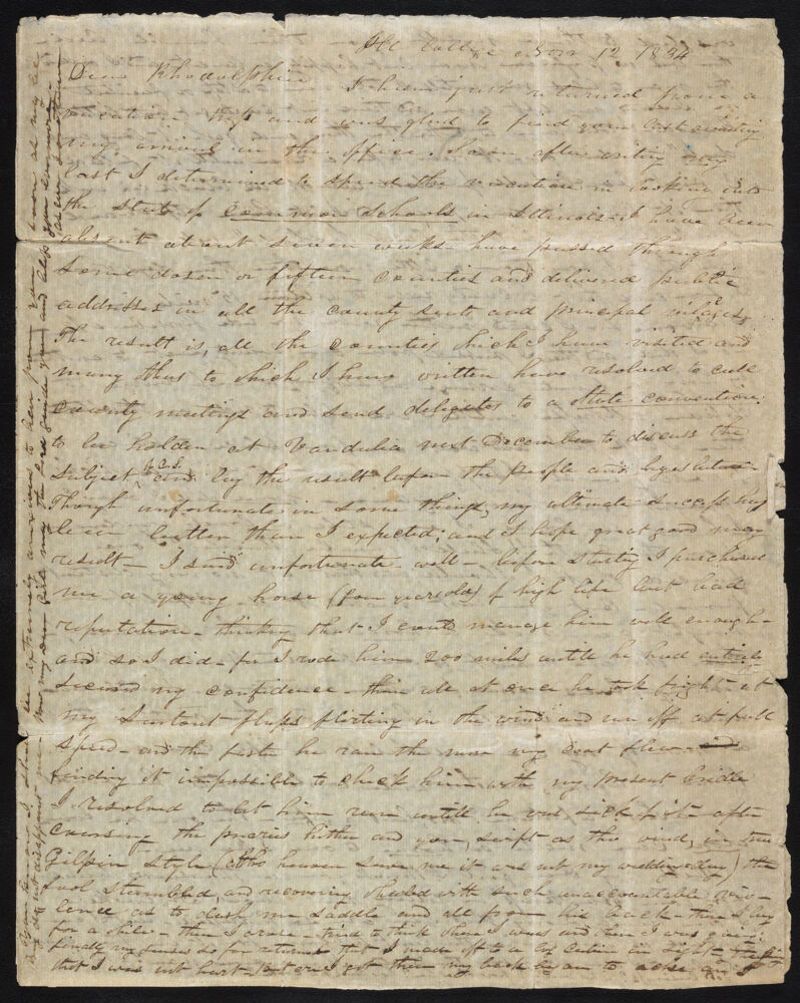 Ill College Nov 12 1834
Dear Rhodolphia I have just returned from a
vacation trip and was glad to find your last awaiting
my arrival in the office. Soon after writing my
last I determined to spend the vacation in looking into
the state of common schools in Illinois. I have been
absent about seven weeks have passed through
some dozen or fifteen counties and delivered public
addresses in all the county seats and principal villages.
The result is, all the counties which I have visited and
many that to which I have written have resolved to call
county meetings and send delegates to a State convention.
to be holden at Vandalia next December to discuss the
subject of C.S. and lay the result before the people and legislature
Though unfortunate in some things, my ultimate success has
been better than I expected; and I hope great good may
result — I said unfortunate well — before starting I purchased
me a young horse (four years old) of high life but bad
reputation — thinking that I could manage him well enough —
and so I did — for I rode him 200 miles until he had entirely
secured my confidence — then all at once he took fright at
my Surtout flaps flirting in the wind and run off at full
speed — and the faster he ran the more my coat flew —
finding it impossible to check him with my present bridle
I resolved to let him run until he was sick of it — after
coursing the prairies hither and yon, swift as the wind, in true
Gilpin style (altho heaven save me it was not my wedding day) the
fool stumbled, and recovering wheeled with such unaccountable vio-
lence as to dash me saddle and all from his back — there I lay
for a while — then I arose — tried to think where I was and where I was going;
finally my senses so far returned that I made off to a cabin in sight
that I was not hurt — but ere I got there my back began to ache and I
I shall be extremely anxious to hear from you
soon as may be
do not disappoint me
may the Lord guide you and bless you
as ever